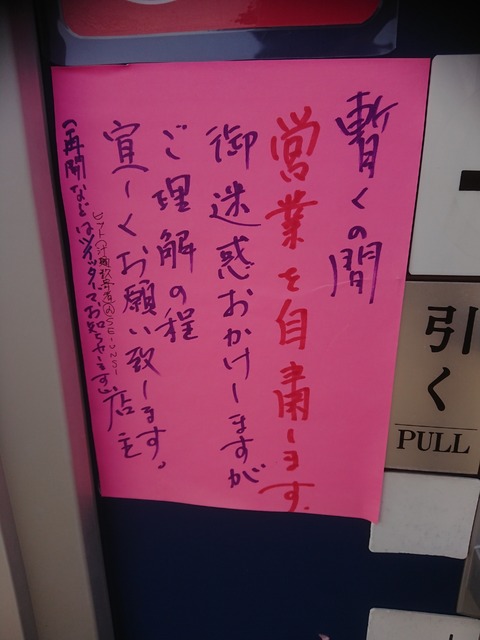 暫くの間
営業を自粛します.
御迷惑おかけしますが
ご理解の程
宜しくお願い致します。
店主
(再開などはツイッターでお知らせします)
引く
PULL